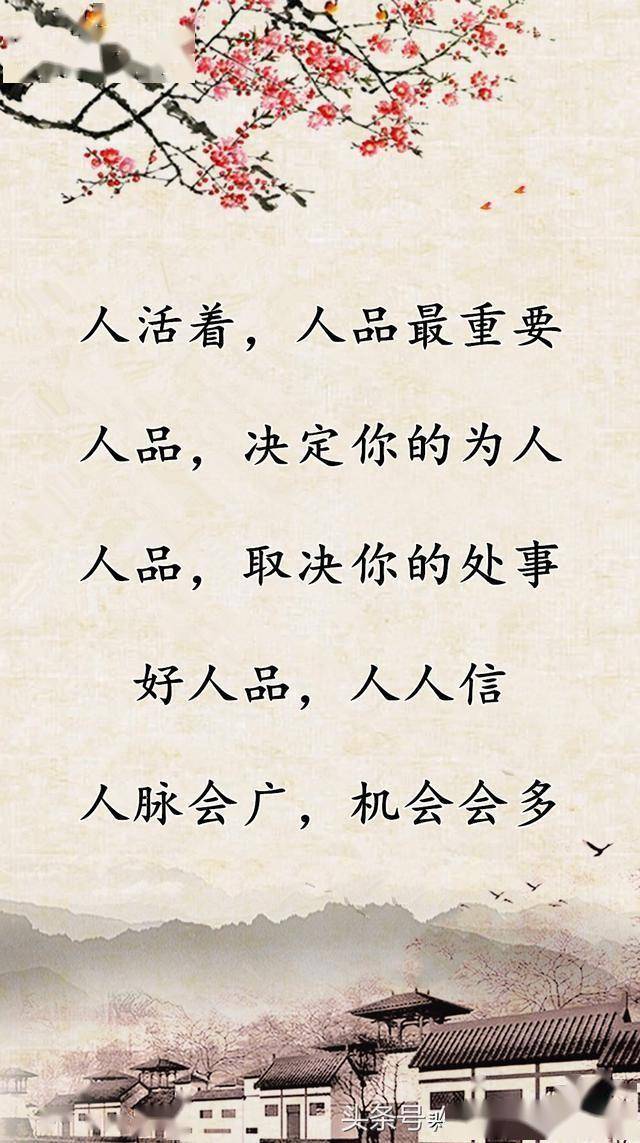 人活着，人品最重要
人品，决定你的为人
人品，取决你的处事
好人品，人人信
人脉会广，机会会多
头条号